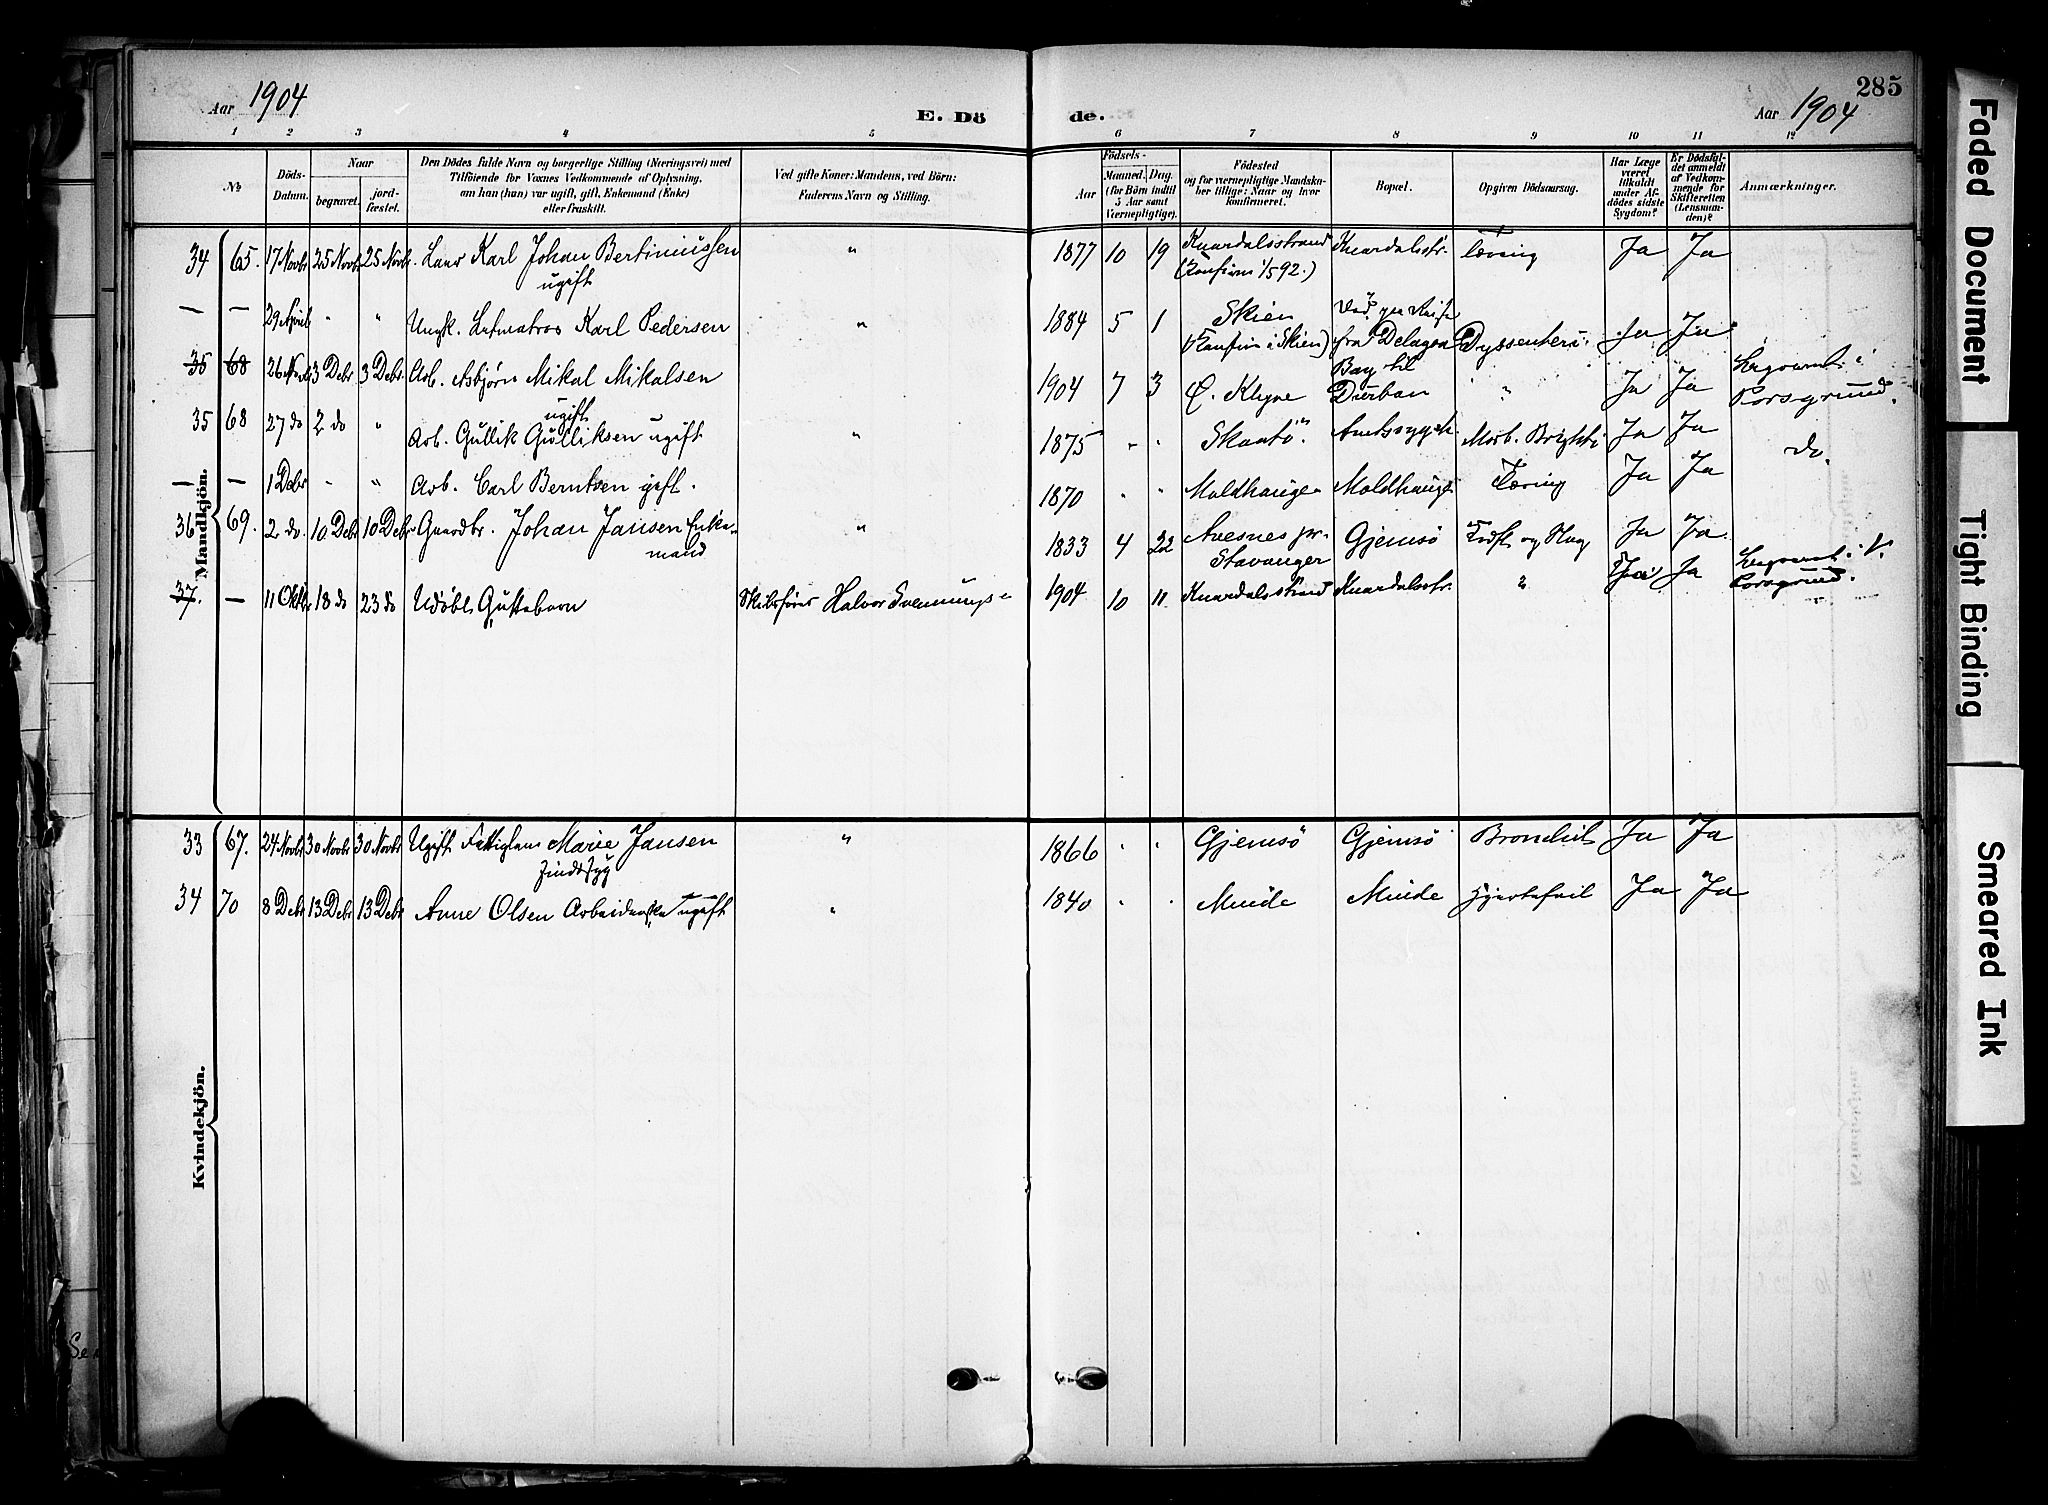 285
Aar 1904
E. Dö
de.
Aar 1904
1 2 3 4 5 6 7 8 9 10 11 12
№
Döds-Datum.
Naar
begravet.
jord-fæstet.
Den Dödes fulde Navn og borgerlige Stilling (Næringsvei) med
Tilföiende for Voxnes Vedkommende af Oplysning,
om han (hun) var ugift, gift, Enkemand (Enke)
eller fraskilt.
Ved gifte Koner: Mandens, ved Börn:
Faderens Navn og Stilling.
Födsels-
Aar
Maaned.
Dag.
(for Börn indtil
5 Aar samt
Værnepligtige).
Födested
og for værnepligtige Mandska-
ber tillige: Naar og hvor
konfirmeret.
Bopæl.
Opgiven Dödsaarsag.
Har Læge
været
tilkaldt
under Af-
dödes sidste
Sygdom?
Er Dödsfal-
det anmeldt
af Vedkom-
mende for
Skifteretten
(Lensman-
den)?
Anmærkninger.
34 65. 17 Novbr 25 Novbr 25 Novbr. Karl Johan Bertiniussen " 1877 10 19 Knardalsstrand Knardalsstr. Tæring Ja Ja
ugift
(Konfirm 1/5 92.)
— — 29 April " " Ungk. Letmatros Karl Pedersen " 1884 5 1 Skien
(Konfirm i Skien) fra Delagoa Dyssenteri. Ja Ja
35 68 26 3 Debr 3 Debr. Arb. Asbjörn Mikal Mikalsen 1904 7 3 Ö. Klyve Bay til
Durban " Ja Ja
Porsgrund.
ugift
35 68 27 do 2 do " Arb. Gullik Gulliksen ugift " 1875 " " Skaatö. Amtssygeh. Morb. Brighti Ja Ja do.
— — 1 Debr " " Arb. Carl Berntsen gift. 1870 " " Moldhaugen Moldhaugen Tæring Ja Ja
36 69. 2 do. 10 Debr 10 Debr Gaardbr. Johan Jansen Enke-
mand " 1833 4 22 pr.
Stavanger Gjemsö og Ja Ja
37. — 11 Oktbr 18 do 23 do Udöbt Guttebarn Skibsförer Halvor Svennungs- 1904 10 11 Knardalsstrand Knardalsstr. " Ja Ja
Porsgrund.
Mandkjön.
33 67. 24 Novbr 30 Novbr 30 Novbr Ugift Marie Jansen " 1866 " " Gjemsö Gjemsö Bronchit Ja Ja
Sindssyg
34 70 8 Debr 13 Debr 13 Debr Anne Olsen ugift " 1840 " " Minde Minde Hjertefeil Ja Ja
Kvindekjön.
Faded Document
Tight Binding
Smeared Ink